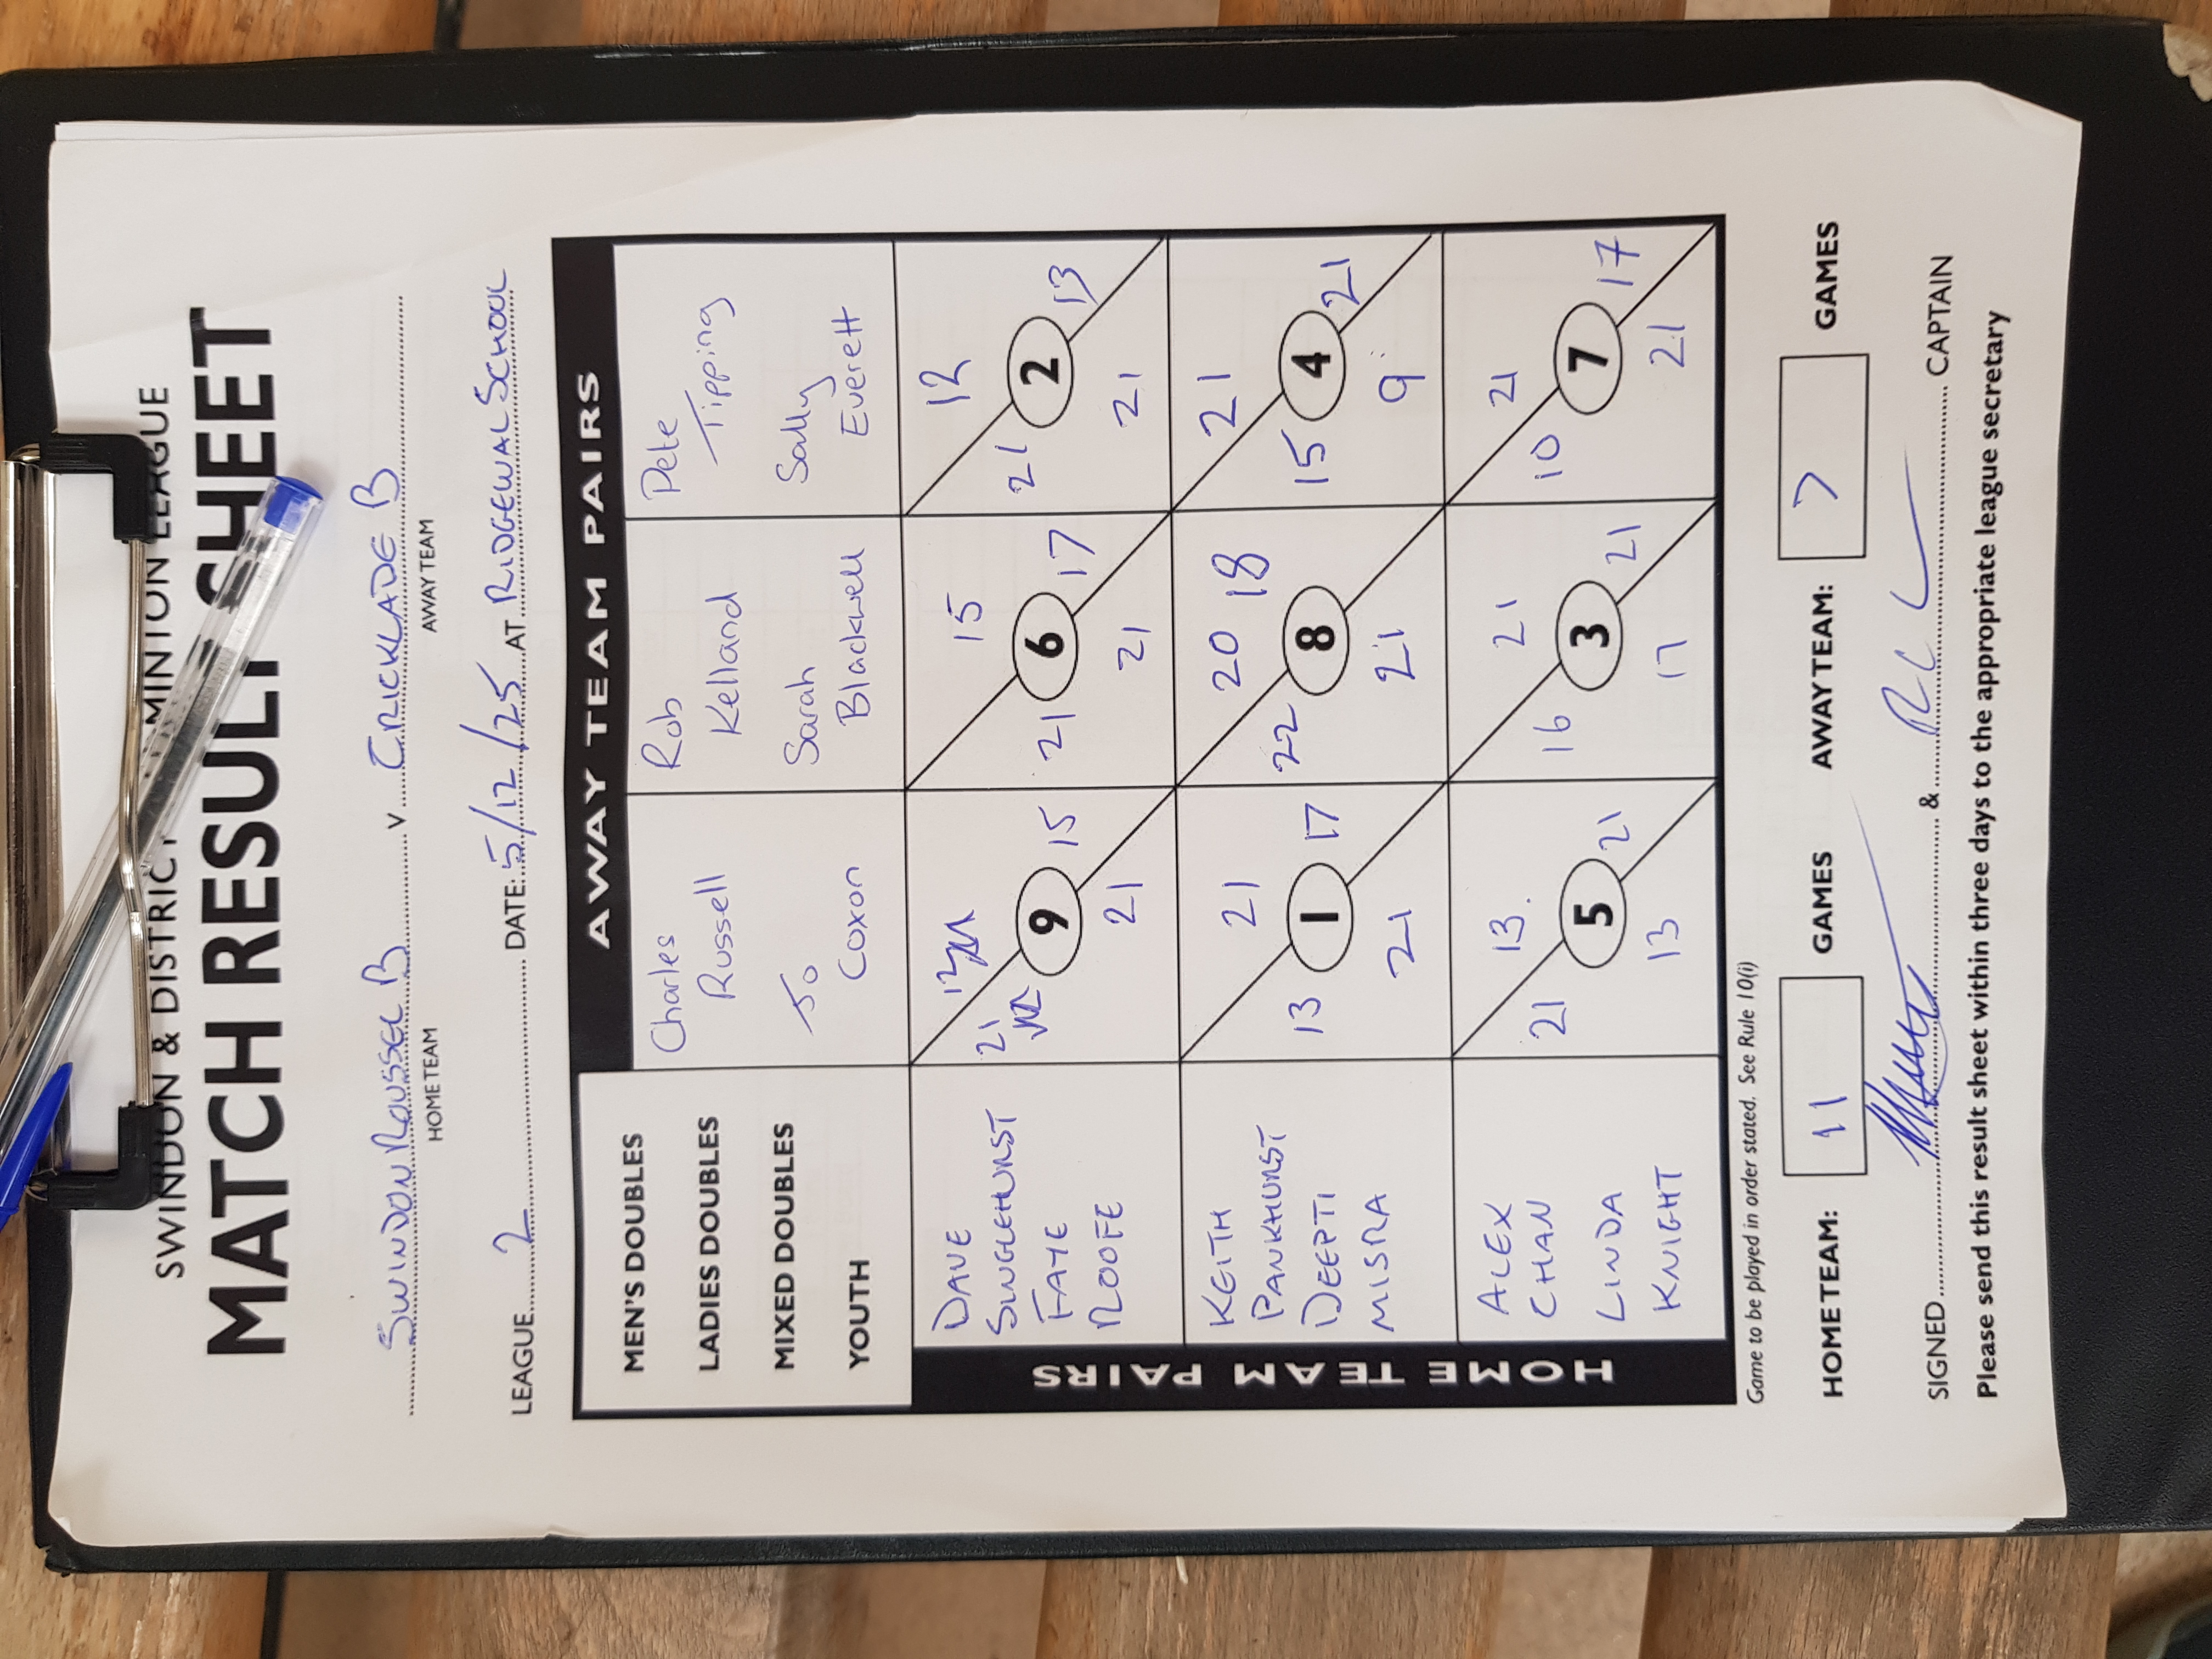 SWINDON & DISTRICT MINTON LEAGUE
MATCH RESULT SHEET
SWINDON ROUSSEL B v CRICKLADE B
HOME TEAM AWAY TEAM
LEAGUE 2 DATE: 5/12/25 AT RIDGEWAY SCHOOL
AWAY TEAM PAIRS
MEN'S DOUBLES Charles Rob Pete
LADIES DOUBLES Russell Kelland Tipping
MIXED DOUBLES Jo Sarah Sally
YOUTH Coxon Blackwell Everett
HOME TEAM PAIRS
DAVE 12 15 12
SINGLEHURST 21 21 21
FAYE 9 15 6 17 2 13
ROOFE 21 21 21
KEITH 21 20 18 21
PANKHURST 13 22 15
DEEPTI 1 17 8 4 21
MISRA 21 21 9
ALEX 13. 21 21
CHAN 21 16 10
LINDA 5 21 3 21 7 17
KNIGHT 13 17 21
Game to be played in order stated. See Rule 10(i)
HOME TEAM: 11 GAMES AWAY TEAM: 7 GAMES
SIGNED & CAPTAIN
Please send this result sheet within three days to the appropriate league secretary